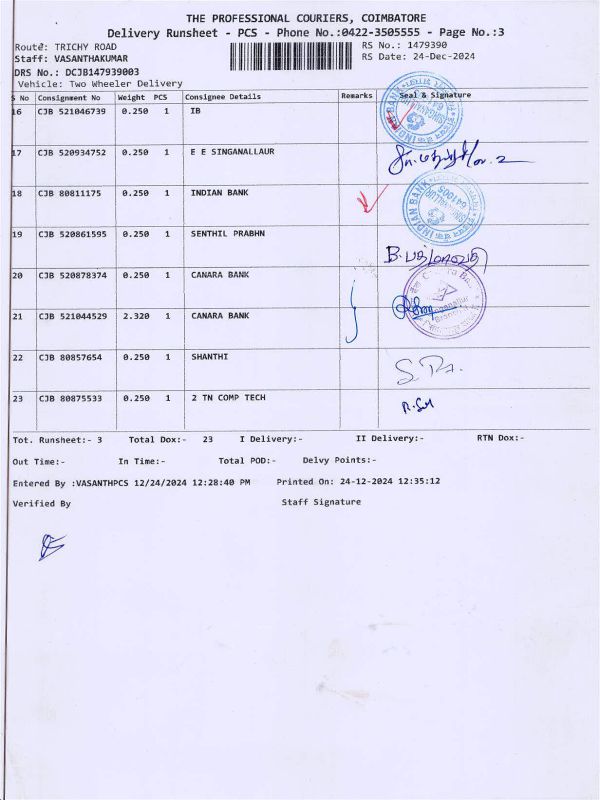 THE PROFESSIONAL COURIERS, COIMBATORE
Delivery Runsheet - PCS - Phone No.:0422-3505555 - Page No.:3
Route: TRICHY ROAD RS No.: 1479390
Staff: VASANTHAKUMAR RS Date: 24-Dec-2024
DRS No.: DCJB147939003
Vehicle: Two Wheeler Delivery
S No Consignment No Weight PCS Consignee Details Remarks Seal & Signature
16 CJB 521046739 0.250 1 IB
17 CJB 520934752 0.250 1 E E SINGANALLAUR
18 CJB 80811175 0.250 1 INDIAN BANK
INDIAN BANK
641005
19 CJB 520861595 0.250 1 SENTHIL PRABHN
20 CJB 520878374 0.250 1 CANARA BANK
21 CJB 521044529 2.320 1 CANARA BANK
22 CJB 80857654 0.250 1 SHANTHI
23 CJB 80875533 0.250 1 2 TN COMP TECH
Tot. Runsheet:- 3 Total Dox:- 23 I Delivery:- II Delivery:- RTN Dox:-
Out Time:- In Time:- Total POD:- Delvy Points:-
Entered By :VASANTHPCS 12/24/2024 12:28:40 PM Printed On: 24-12-2024 12:35:12
Verified By Staff Signature